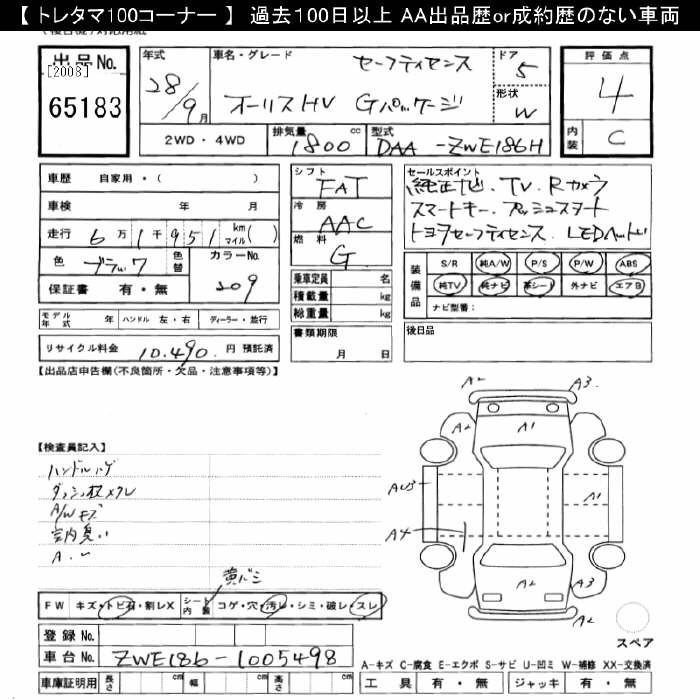 【 トレタマ100コーナー 】 過去100日以上 AA出品歴or成約歴のない車両
出品No.
[2008]
65183
年式
28/9月
車名・グレード
セーフティセンス
オーリスHV Gパッケージ
ドア
5
形状
W
評価点
4
内装
C
2WD・4WD
排気量
1800 cc
型式
DAA-ZWE186H
車歴 自家用・( )
車検 年 月
走行 6万1千951 km マイル( )
色 ブラック 色替
カラーNo.
209
保証書 有・無
シフト
FAT
冷房
AAC
燃料
G
乗車定員 名
積載量 kg
総重量 kg
セールスポイント
純正ナビ.TV.Rカメラ
スマートキー.プッシュスタート
トヨタセーフティセンス.LEDヘッドL
装備品
S/R 純A/W P/S P/W ABS
純TV 純ナビ 革シート 外ナビ エアB
ナビ型番:
モデル年式 年 ハンドル 左・右 ディーラー・並行
リサイクル料金 10,490. 円 預託済
書類期限
月 日
後日品
【出品店申告欄(不良箇所・欠品・注意事項等)】
【検査員記入】
ハンドルハゲ
A/Wキズ
室内臭い
黄バミ
FW キズ・トビ石・割レX
シート内装 コゲ・穴・汚レ・シミ・破レ・スレ
登録No.
車台No. ZWE186-1005498
車庫証明用 長さ cm 幅 cm 高さ cm
A2 A3.
A2 A1
A1
A4
A2 A3
スペア
A-キズ C-腐食 E-エクボ S-サビ U-凹ミ W-補修 XX-交換済
工具 有・無 ジャッキ 有・無